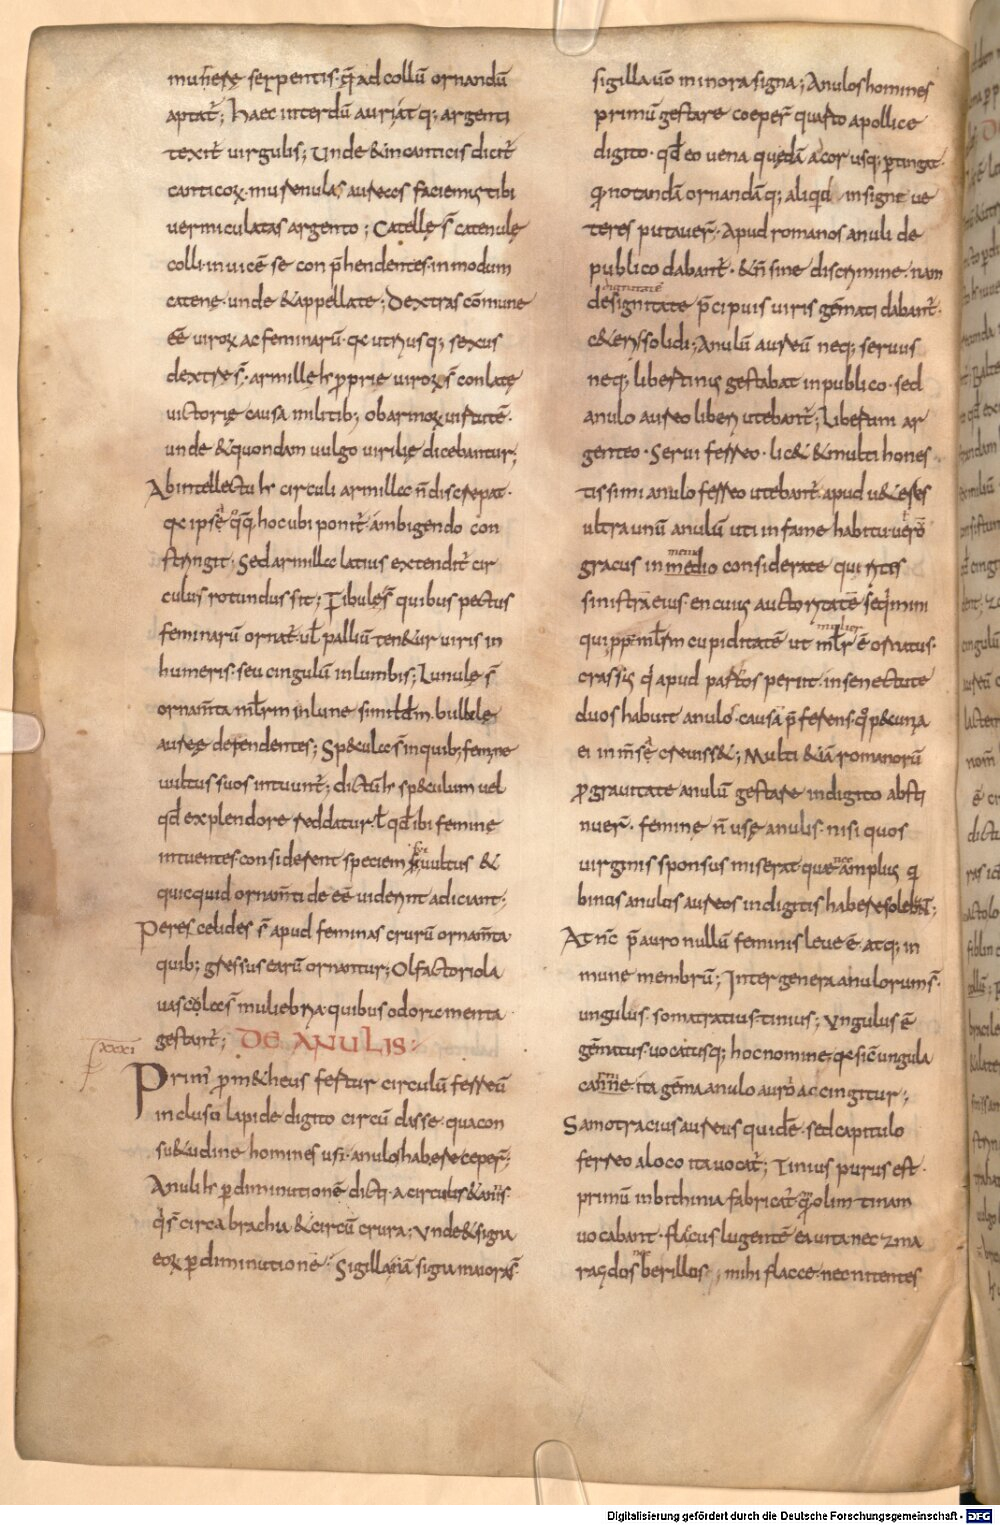 munere serpentis· q̄ ad collū ornandū
aptat̄; haec interdū auri atq; argenti
texit̄ virgulis; Unde & in canticis dicit̄
canticoꝝ· murenulas aureas faciemus tibi
vermiculatas argento; Catellę s̄ catenulę
colli invicē se conp̄hendentes· in modum
catenę· unde & appellatę; Dextras cōmune
eē viroꝝ ac feminarū· qa utriusq; sexus
dextrę s̄· armillę h̄ proprie viroꝝ s̄ conlatę
victorię causa militib; ob armoꝝ virtutē·
unde & quondam vulgo virilię dicebantur;
Ab intellectu h̄ circuli armilla n̄ discrepat·
qa ipsę q̊q; hoc ubi ponit̄· ambigendo con
stringit· Sed armilla latius extendit̄ cir
culus rotundus fit; Fibulę s̄ quibus pectus
feminarū ornat̄· ul̄ palliū ten&ur viris in
humeris· seu cingulū in lumbis; Lunulę s̄
ornam̄ta ml̄rm in lunę similtdm· bullulę
aureę dependentes; Sp&ulae s̄ in quib; feminę
vultus suos intuunt̄; dictū h̄ sp&culum vel
qđ ex plendore reddatur· l̄ qđ ibi feminę
intuentes considerent speciem vultus &
quicquid ornam̄ti deeē viderint adiciant;
Peres celides s̄ apud feminas crurū ornam̄ta
quib; gressus earū ornantur; Olfactoriola
vascola s̄ muliebria· quibus odoramenta
gestant̄; DE ANULIS:
xxxi
Prim' prom&heus fertur circulū ferreū
inclusū lapide digito circū dasse· qua con
su&udine homines usi· anulos habere ceper̄;
Anuli h̄ p diminutionē dicti· a circulis & anis·
q̄ s̄ circa brachia & circū crura; Unde & signa
eoꝝ p diminutionē· Sigilla nā signa maiora s̄
sigilla uō minora signa; Anulos homines
primū gestare coeper̄ quarto a pollice
digito· qđ eo vena quędā a cor usq; ptingat·
q̄ notandā ornandāq; aliq̇d insigne ve
teres putaver̄· Apud romanos anuli de
publico dabant̄· & n̄ sine discrimine· nam
dignitatē
designitate p̄cipuis viris gēmati dabant̄·
c&eris solidi; Anulū aureū neq; servus
neq; libertinus gestabat in publico· sed
anulo aureo liberi utebant̄; Libertini ar
genteo· Servi ferreo· lic& & multi hones
tissimi anulo ferreo utebant̄· apud u&eres
ultra unū anulū uti infame habitū uiro
gracus in medio considerate quirites
sinistrā eius· en cuius auctoritatē seq̇mini
mulier
qui pp ml̄rm cupiditatē ut ml̄r ē ornatus·
crassus q̇ apud partos periit· in senectute
duos habuit anulos· causā p̄ferens· q̊ p&unia
ei inm̄sę crevis&; Multi &iā romanorū
p gravitate anulū gestare in digito absti
nuer̄· feminę n̄ usę anulis· nisi quos
virginis sponsus miserat· quae amplius q̄
binos anulos aureos in digitis habere solebāt;
At nc̄ p̄ auro nullū feminis leve ē· atq; in
mune membrū; Inter genera anulorum s̄
ungulus· somatratius· tinius; Ungulus ē
gēmatus· vocatusq; hoc nomine· qa sic̄ ungula
carne· ita gēma anulo auro accingitur;
Samotracius aureus quidē· sed capitulo
ferreo a loco ita vocat̄; Tinius purus est·
primū in bithinia fabricat̄· quā olim tinam
vocabant· flaccus lugentē ea vita nec zma
ragdos berillos; mihi flacce· nec nitentes
Digitalisierung gefördert durch die Deutsche Forschungsgemeinschaft - DFG